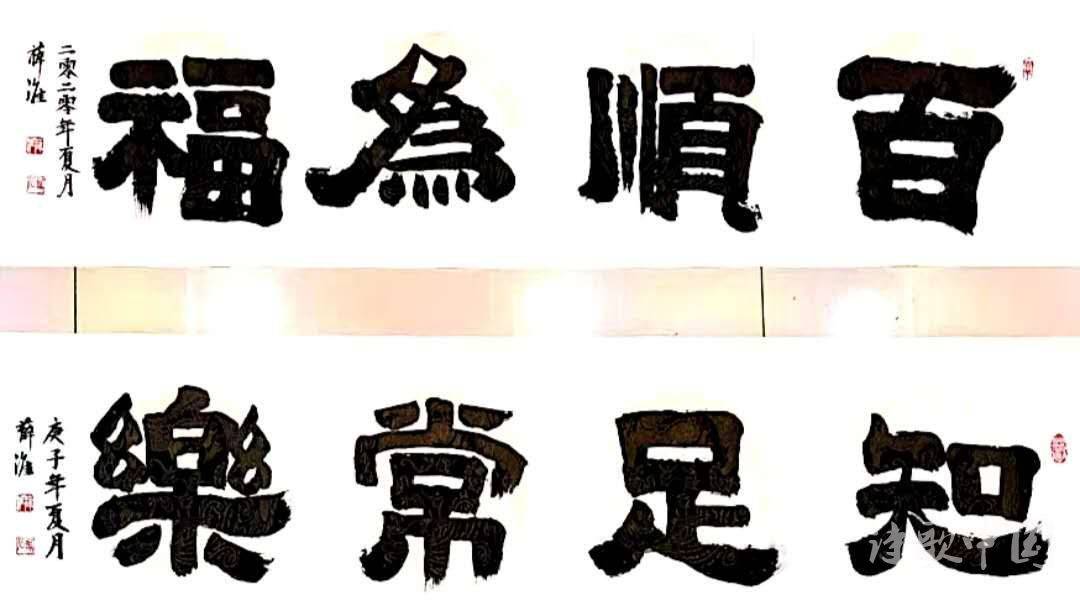 百順為福
二零二零年夏月
薛淮
知足常樂
庚子年夏月
薛淮
诗歌中国